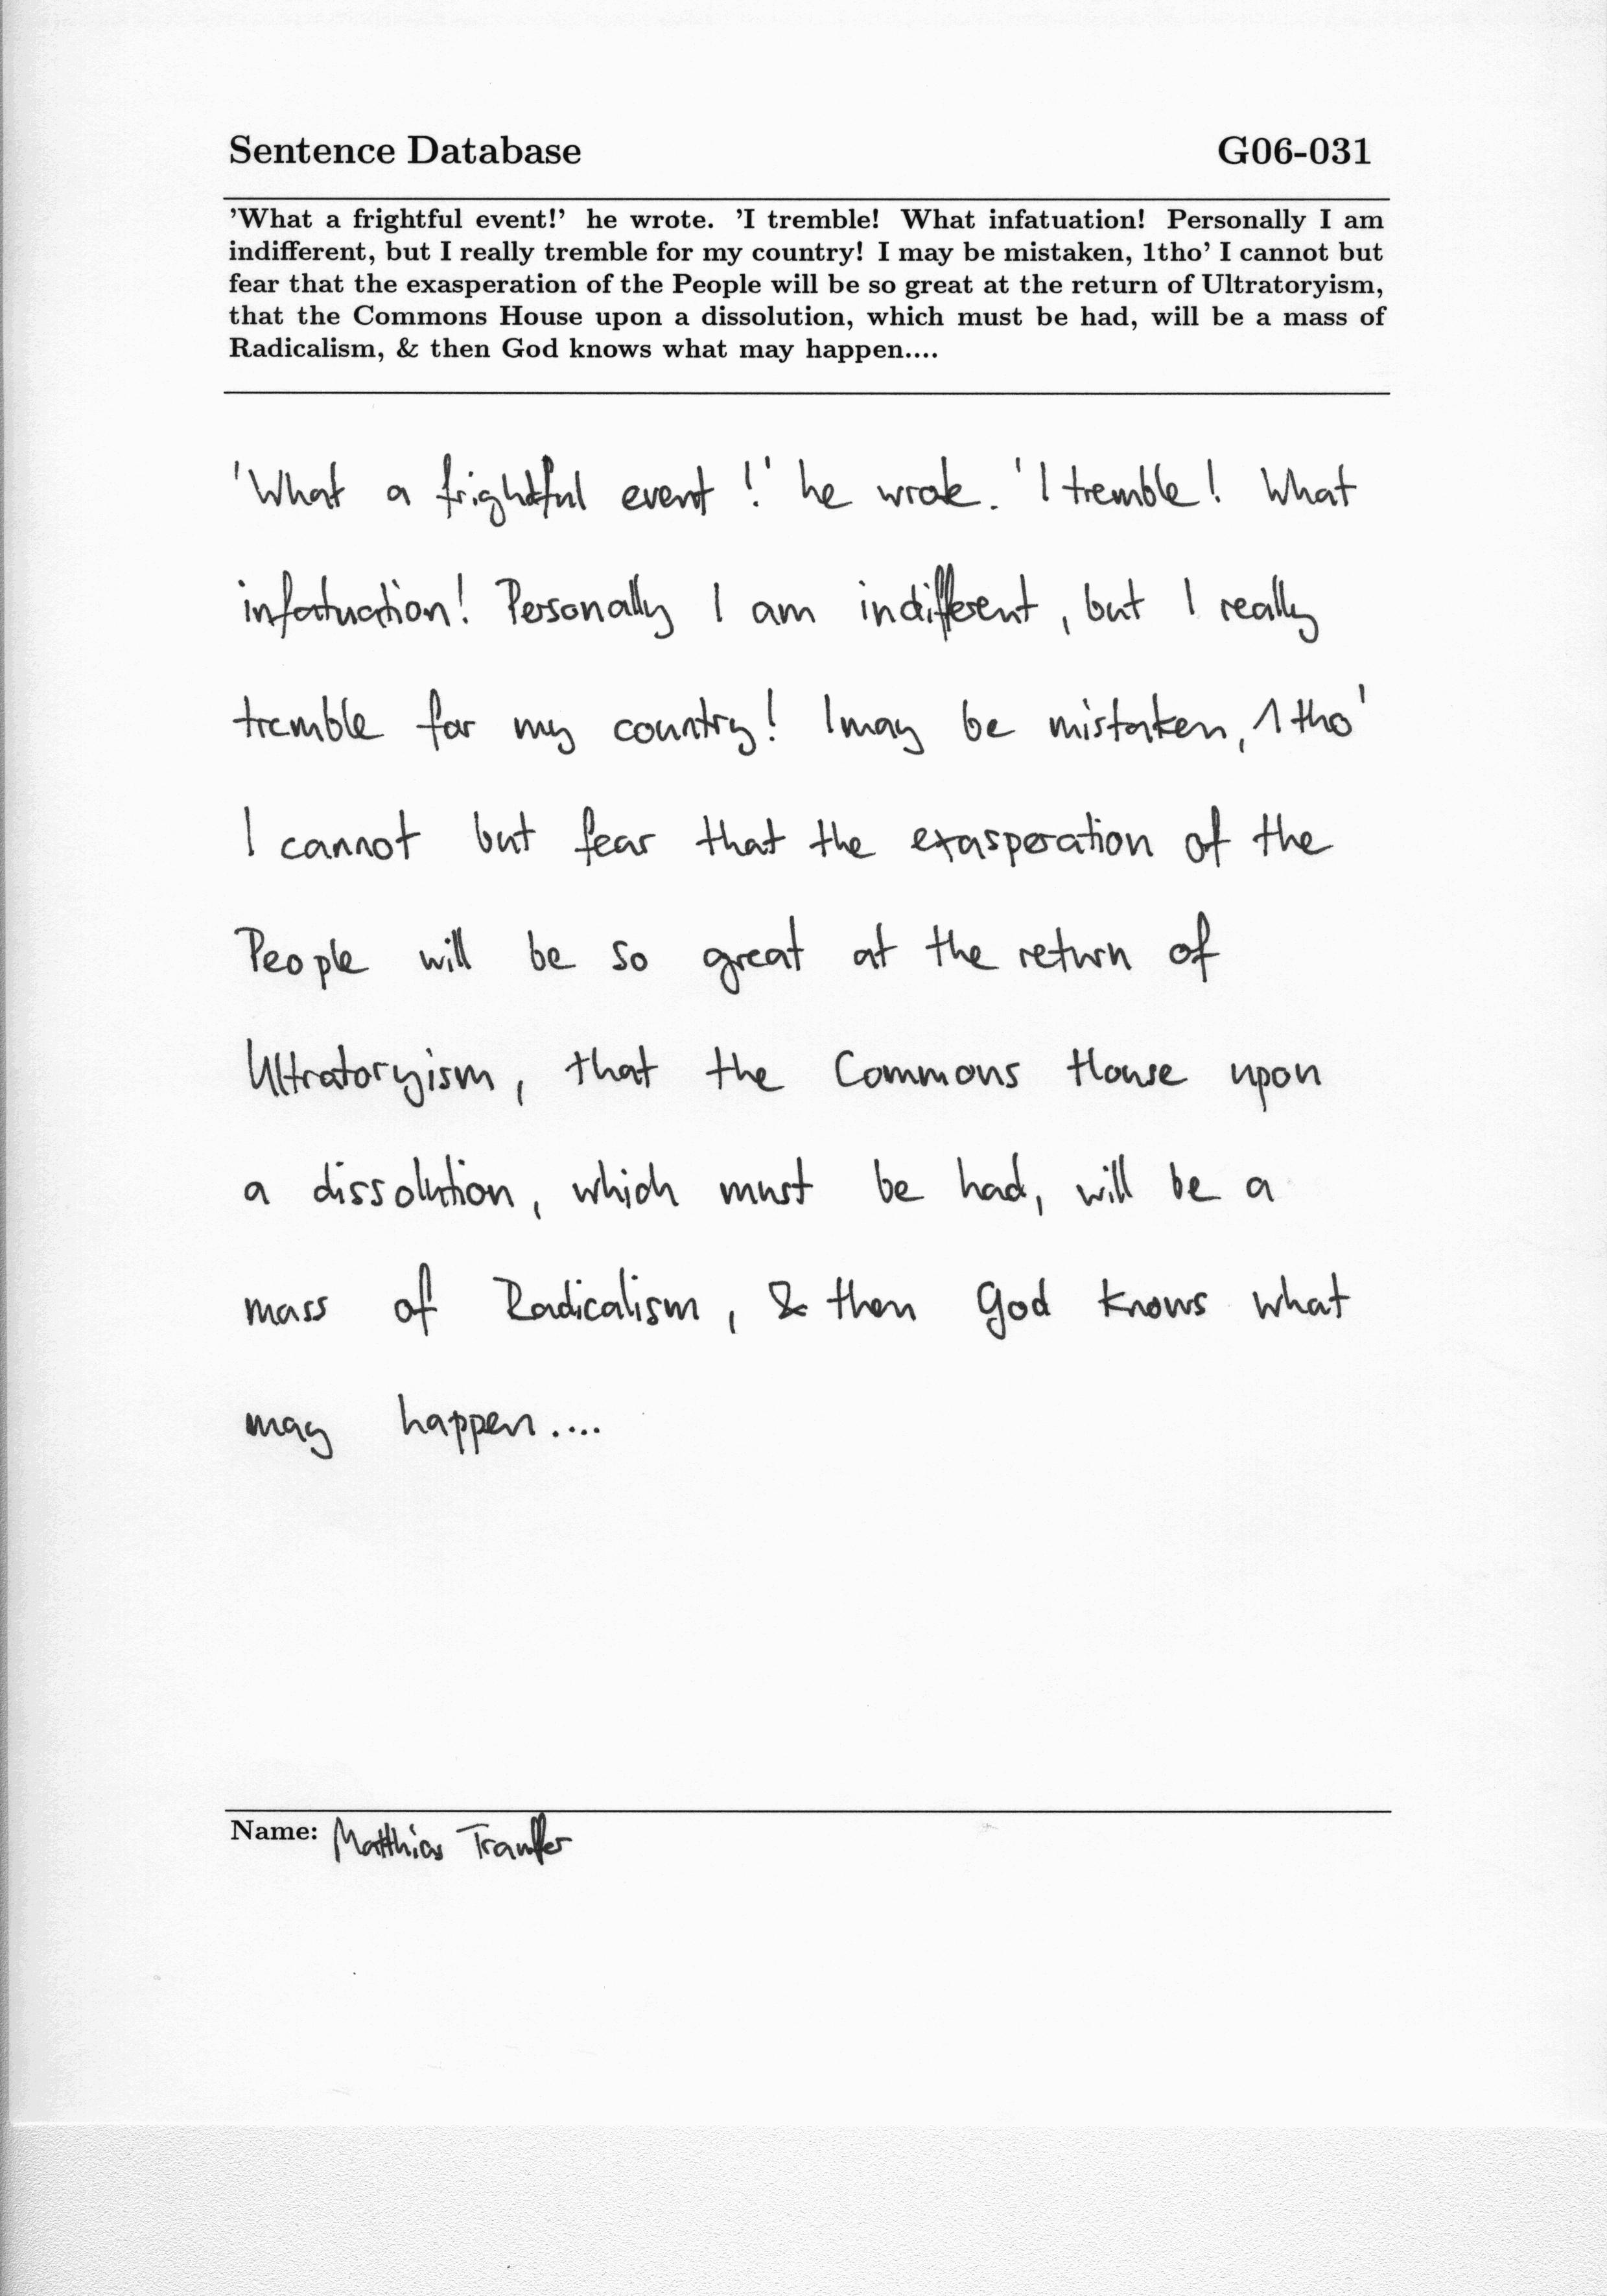 Sentence Database G06-031
’What a frightful event!’ he wrote. ’I tremble! What infatuation! Personally I am
indifferent, but I really tremble for my country! I may be mistaken, 1tho’ I cannot but
fear that the exasperation of the People will be so great at the return of Ultratoryism,
that the Commons House upon a dissolution, which must be had, will be a mass of
Radicalism, & then God knows what may happen....
'What a frightful event!' he wrote. 'I tremble! What
infatuation! Personally I am indifferent, but I really
tremble for my country! I may be mistaken, 1tho'
I cannot but fear that the exasperation of the
People will be so great at the return of
Ultratoryism, that the Commons House upon
a dissolution, which must be had, will be a
mass of Radicalism, & then God knows what
may happen....
Name: Matthias